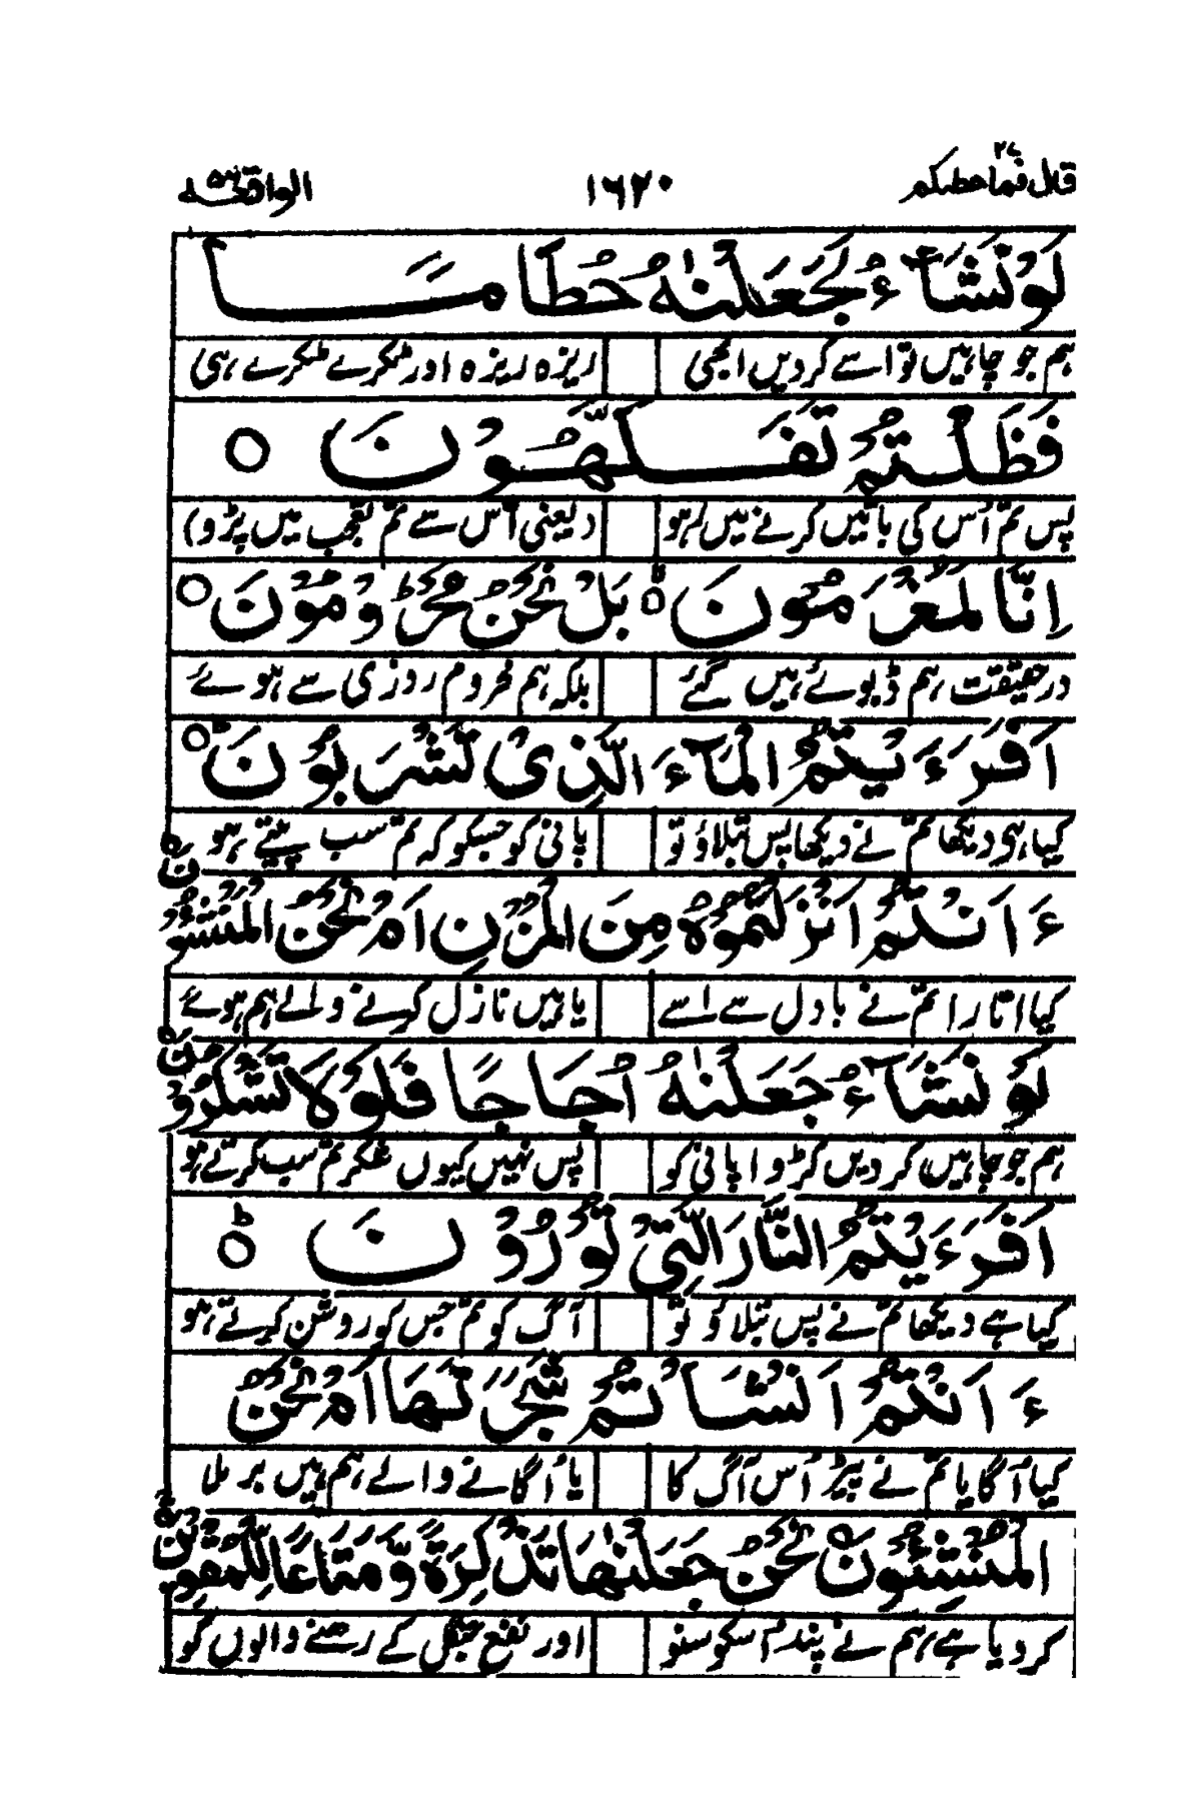 قال فما خطبکم ۲۷ ۱۶۲۰ الواقعة ۵۶
لَوْ نَشَآءُ لَجَعَلْنٰهُ حُطَامًا
ہم جو چاہیں تو اسے کردیں ابھی ریزہ ریزہ اور ٹکرے ٹکرے ہی
فَظَلْتُمْ تَفَكَّهُوْنَ ○
پس تم اُس کی باتیں کرنے میں رہو (یعنی اس سے تم تعجب میں پڑو)
اِنَّا لَمُغْرَمُوْنَ ۙ بَلْ نَحْنُ مَحْرُوْمُوْنَ ○
درحقیقت ہم ڈبوئے ہیں گئے بلکہ ہم محروم روزی سے ہوئے
اَفَرَءَيْتُمُ الْمَآءَ الَّذِيْ تَشْرَبُوْنَ ؕ
کیا ہی دیکھا تم نے دیکھا پس بتلاؤ تو پانی کو جسکو کہ تم سب پیتے ہو
ءَاَنْتُمْ اَنْزَلْتُمُوْهُ مِنَ الْمُزْنِ اَمْ نَحْنُ الْمُنْزِلُوْنَ
کیا اتارا تم نے بادل سے اسے یا ہیں نازل کرنے والے ہم ہوئے
لَوْ نَشَآءُ جَعَلْنٰهُ اُجَاجًا فَلَوْلَا تَشْكُرُوْنَ
ہم جو چاہیں کردیں کڑوا پانی کو پس نہیں کیوں شکر تم سب کرتے ہو
اَفَرَءَيْتُمُ النَّارَ الَّتِيْ تُوْرُوْنَ ؕ
کیا ہے دیکھا تم نے پس بتلاؤ تو آگ کو تم جس کو روشن کرتے ہو
ءَاَنْتُمْ اَنْشَاْتُمْ شَجَرَتَهَا اَمْ نَحْنُ
کیا اُگایا تم نے پیڑ اُس آگ کا یا اُگانے والے ہم ہیں برملا
الْمُنْشِئُوْنَ نَحْنُ جَعَلْنٰهَا تَذْكِرَةً وَّمَتَاعًا لِّلْمُقْوِيْنَ
کردیا ہے ہم نے پند اسکو سنو اور نفع جنگل کے رہنے والوں کو